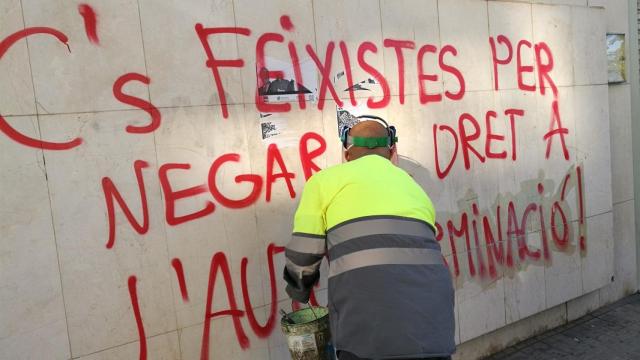 C's FEIXISTES PER
NEGAR DRET A
l'AUT RMINACIÓ!